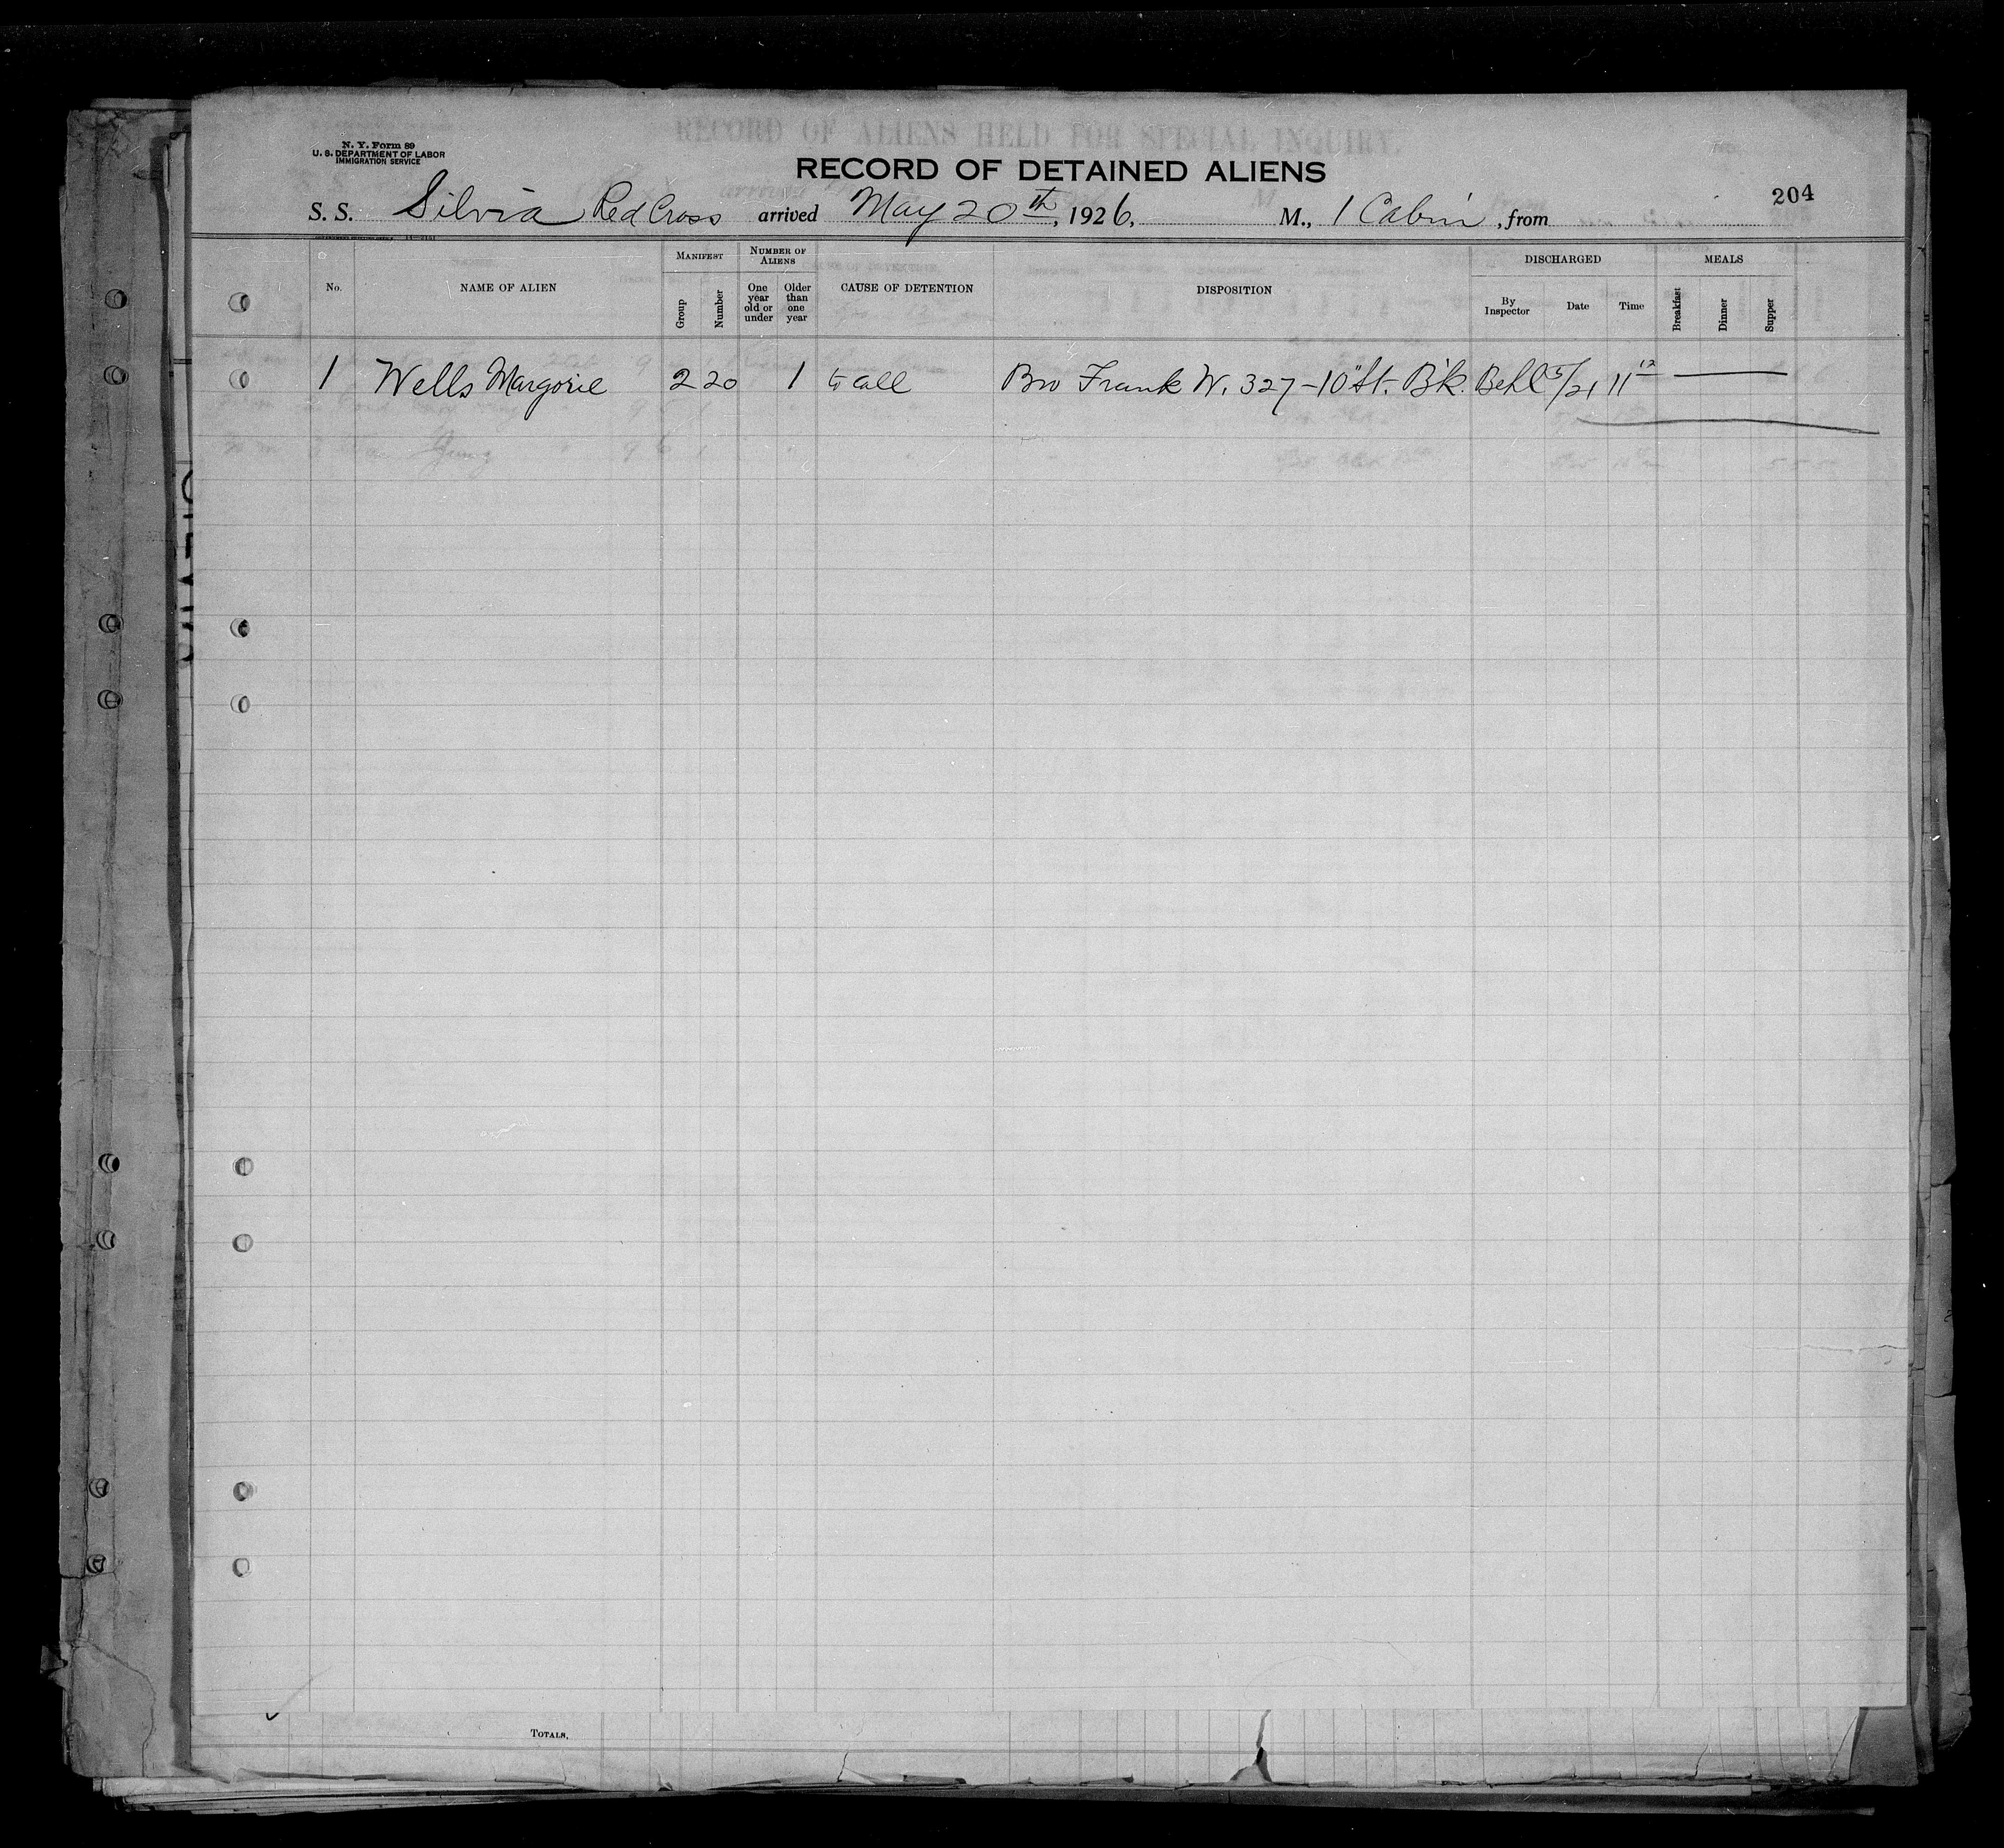 RECORD OF ALIENS HELD FOR SPECIAL INQUIRY.
N. Y. Form 89
U. S. DEPARTMENT OF LABOR
IMMIGRATION SERVICE
RECORD OF DETAINED ALIENS
204
S. S. Silvia Red Cross arrived May 20th, 1926, M., 1 Cabin, from
No. NAME OF ALIEN MANIFEST Group Number NUMBER OF ALIENS One year old or under Older than one year CAUSE OF DETENTION DISPOSITION DISCHARGED By Inspector Date Time MEALS Breakfast Dinner Supper
1 Wells Margorie 2 20 1 to call Bro Frank W. 327-10" St. Bk. Behl 5/21 11 12
TOTALS.